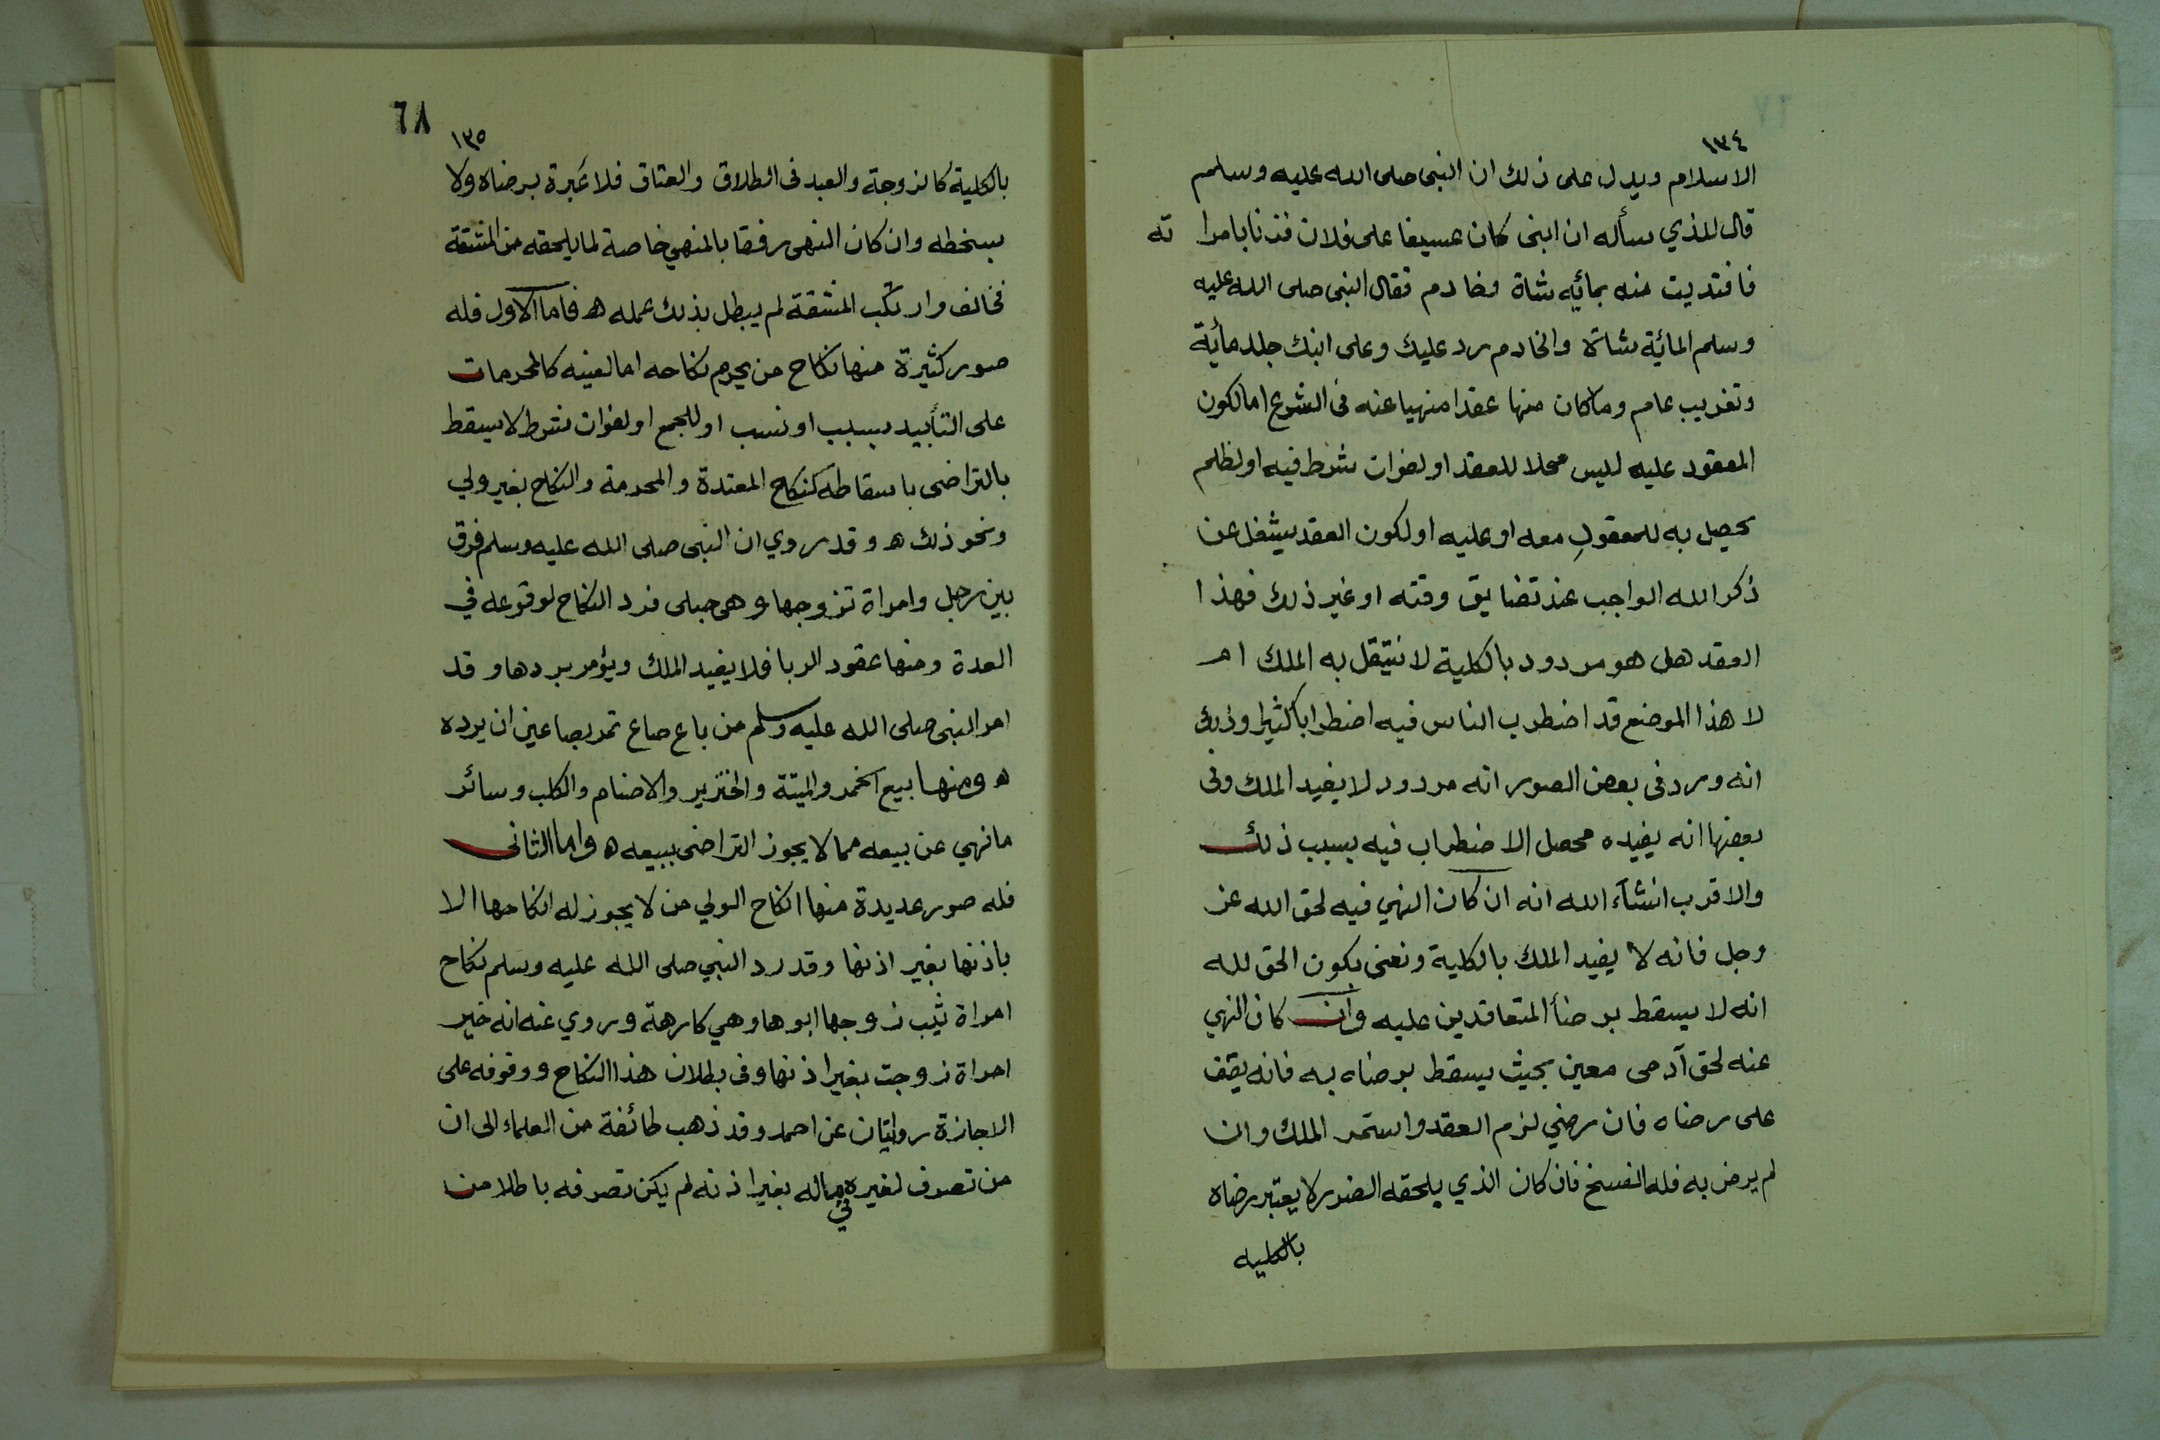 ١٣٤
الاسلام ويدل على ذلك ان النبى صلى الله عليه وسلم
قال للذي سأله ان ابنى كان عسيفا على فلان فزنا بامرا ته
فافتديت منه بمائيه شاة وخادم فقال النبى صلى الله عليه
وسلم المائية شاة والخادم رد عليك وعلى ابنك جلد مأية
وتغريب عام وما كان منها عقدا منهيا عنه فى الشرع اما لكون
المعقود عليه ليس محلا للعقد او لفوات شرط فيه او لظلم
يحصل به للمعقود معه او عليه او لكون العقد يشغل عن
ذكر الله الواجب عند تضايق وقته او غير ذلك فهذا
العقد هل هو مردود بالكلية لا ينتقل به الملك ام
لا هذا الموضع قد اضطرب الناس فيه اضطرابا كثيرا وذلك
انه ورد فى بعض الصور انه مردود لا يفيد الملك وفى
بعضها انه يفيده محصل الاضطراب فيه بسبب ذلك
والاقرب انشآء الله انه ان كان النهي فيه لحق الله عز
وجل فانه لا يفيد الملك بالكلية ونعنى بكون الحق لله
انه لا يسقط برضأ المتعاقدين عليه وان كان النهي
عنه لحق آدمى معين بحيث يسقط برضاه به فانه يقف
على رضاه فان رضي لزم العقد واستمر الملك وان
لم يرض به فله الفسخ فان كان الذي يلحقه الضرر لا يعتبر رضاه
بالكليه
٦٨
١٣٥
بالكلية كالزوجة والعبد فى الطلاق والعتاق فلا عبرة برضاه ولا
بسخطه وان كان النهى رفقا بالمنهي خاصة لما يلحقه من المشقة
فخالف وارتكب المشقة لم يبطل بذلك عمله ه فاما الاول فله
صور كثيرة منها نكاح من يحرم نكاحه اما لعينه كالمحرمات
على التأبيد بسبب او نسب او للجمع او لفوات شرط لا يسقط
بالتراضى باسقاطه كنكاح المعتدة والمحرمة والنكاح بغير ولي
ونحو ذلك ه وقد روي ان النبى صلى الله عليه وسلم فرق
بين رجل وامراة تزوجها وهى حبلى فرد النكاح لوقوعه في
العدة ومنها عقود الربا فلا يفيد الملك ويؤمر بردها وقد
امر النبى صلى الله عليه وسلم من باع صاع تمر بصاعين ان يرده
ه ومنها بيع الخمر والميتة والخنزير والاصنام والكلب وسائر
ما نهي عن بيعه مما لا يجوز التراضى ببيعه ه واما الثانى
فله صور عديدة منها انكاح الولي من لا يجوز له انكاحها الا
باذنها بغير اذنها وقد رد النبي صلى الله عليه وسلم نكاح
امراة ثيب زوجها ابوها وهي كارهة وروي عنه انه خير
امراة زوجت بغير اذنها وفى بطلان هذا النكاح ووقوفه على
الاجازة روايتان عن احمد وقد ذهب طائفة من العلماء الى ان
من تصرف لغيره في ماله بغير اذنه لم يكن تصرفه باطلا من